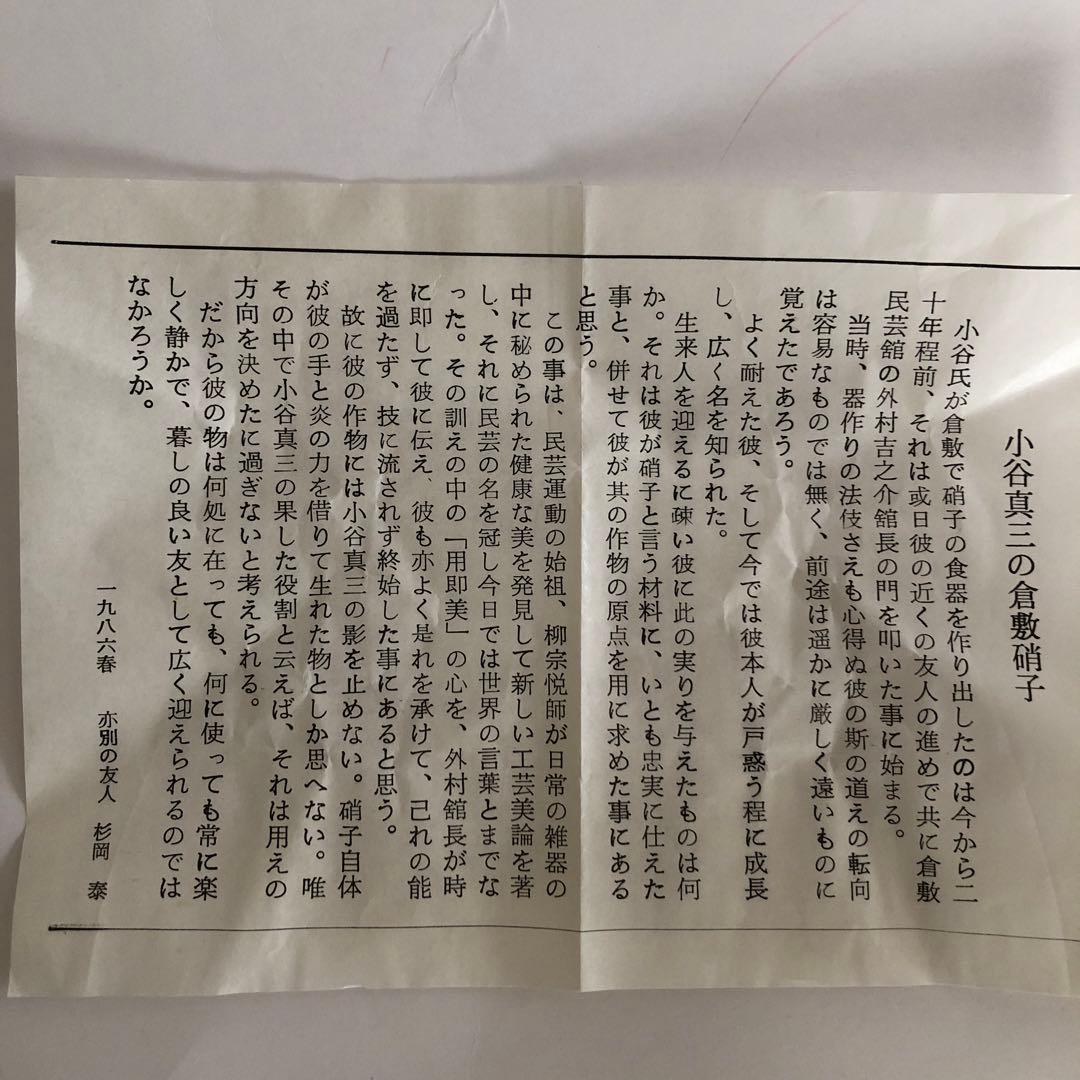 小谷真三の倉敷硝子
小谷氏が倉敷で硝子の食器を作り出したのは今から二
十年程前、それは或日彼の近くの友人の進めで共に倉敷
民芸舘の外村吉之介舘長の門を叩いた事に始まる。
当時、器作りの法伎さえも心得ぬ彼の斯の道えの転向
は容易なものでは無く、前途は遥かに厳しく遠いものに
覚えたであろう。
よく耐えた彼、そして今では彼本人が戸惑う程に成長
し、広く名を知られた。
生来人を迎えるに疎い彼に此の実りを与えたものは何
か。それは彼が硝子と言う材料に、いとも忠実に仕えた
事と、併せて彼が其の作物の原点を用に求めた事にある
と思う。
この事は、民芸運動の始祖、柳宗悦師が日常の雑器の
中に秘められた健康な美を発見して新しい工芸美論を著
し、それに民芸の名を冠し今日では世界の言葉とまでな
った。その訓えの中の「用即美」の心を、外村舘長が時
に即して彼に伝え、彼も亦よく是れを承けて、己れの能
を過たず、技に流されず終始した事にあると思う。
故に彼の作物には小谷真三の影を止めない。硝子自体
が彼の手と炎の力を借りて生れた物としか思へない。唯
その中で小谷真三の果した役割と云えば、それは用えの
方向を決めたに過ぎないと考えられる。
だから彼の物は何処に在っても、何に使っても常に楽
しく静かで、暮しの良い友として広く迎えられるのでは
なかろうか。
一九八六春　亦別の友人　杉岡　泰